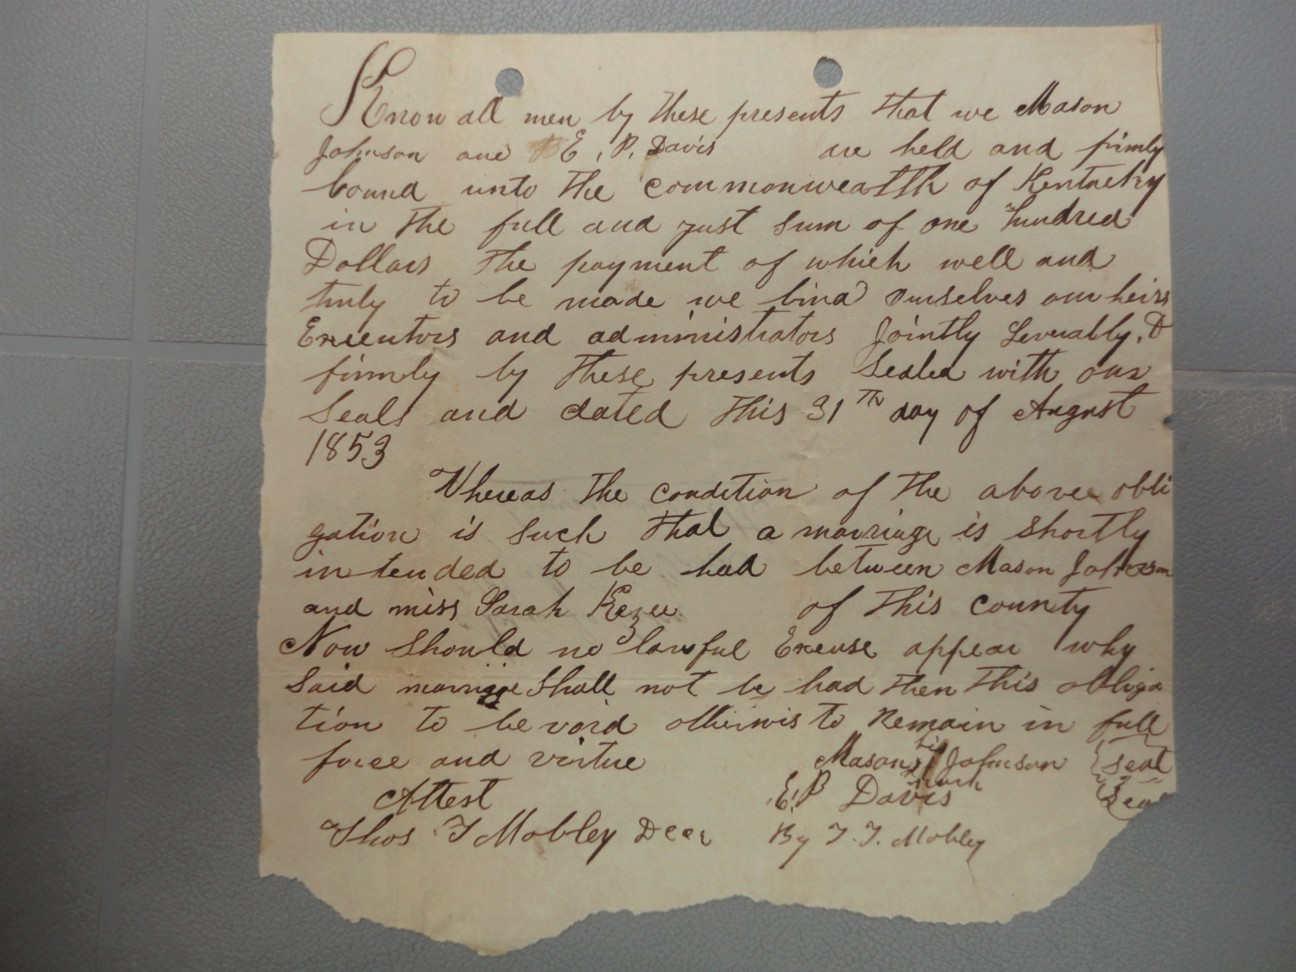 Know all men by these presents that we Mason
Johnson and E. P. Davis are held and firmly
bound unto the commonwealth of Kentucky
in the full and just sum of one hundred
Dollars the payment of which well and
truly to be made we bind ourselves our heirs
Executors and administrators Jointly Severably, &
firmly by these presents Sealed with our
Seals and dated this 31th day of August
1853
Whereas the condition of the above obli
gation is such that a marriage is shortly
intended to be had between Mason Johnson
and miss Sarah Kezee of this county
Now should no lawful Excuse appear why
Said marriage Shall not be had then this obliga
tion to be void otherwis to Remain in full
force and virtue
Mason his mark Johnson Seal
Attest E. P Davis Seal
Thos T Mobley By T. T. Mobley